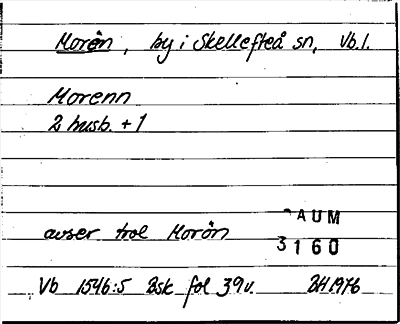 Morön, by i Skellefteå sn, Vb. l.
Morenn
2 husb. + 1
avser trol Morön
AUM
3160
Vb 1546:5 Bsk fol 39v. BH 1976